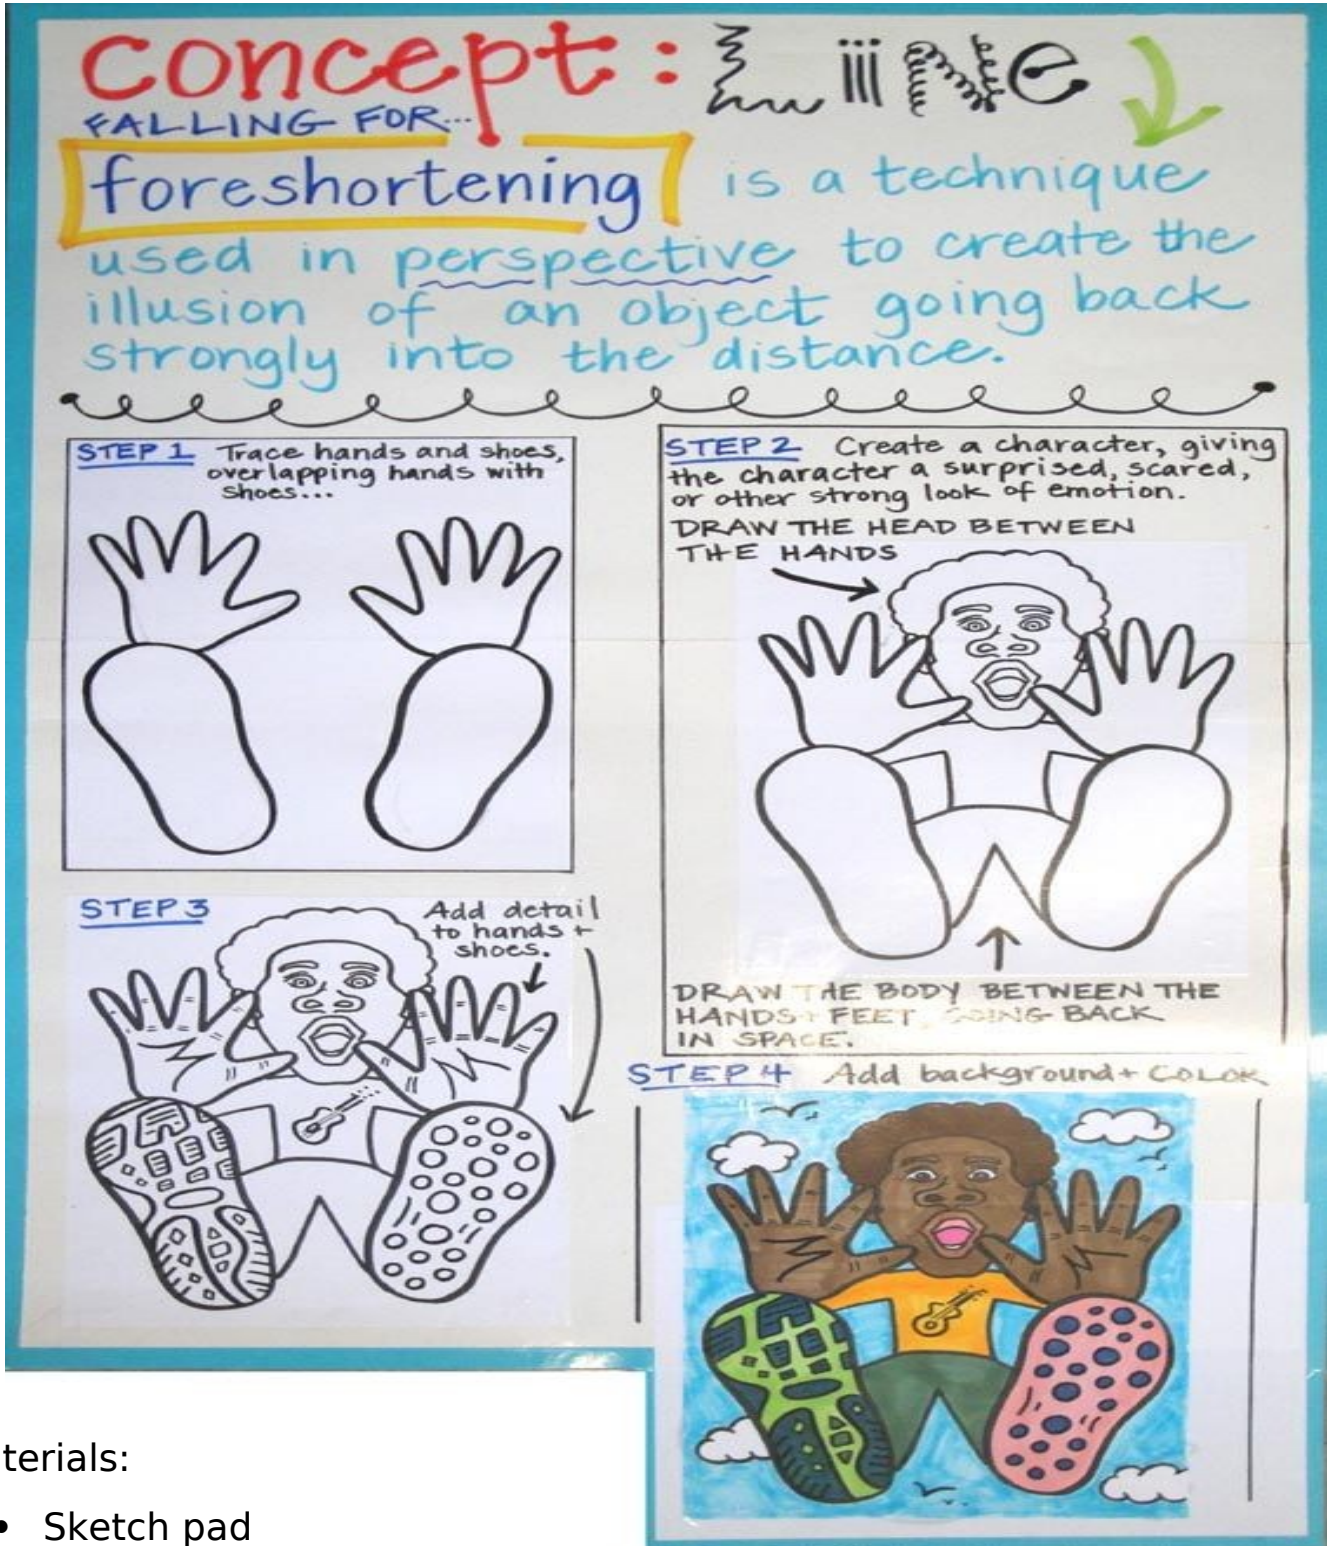 concept: LiiNe
FALLING FOR...
foreshortening is a technique
used in perspective to create the
illusion of an object going back
strongly into the distance.
STEP 1 Trace hands and shoes,
overlapping hands with
shoes...
STEP 2 Create a character, giving
the character a surprised, scared,
or other strong look of emotion.
DRAW THE HEAD BETWEEN
THE HANDS
DRAW THE BODY BETWEEN THE
HANDS + FEET, GOING BACK
IN SPACE.
STEP 3
Add detail
to hands +
shoes.
STEP 4 Add background + COLOR
terials:
• Sketch pad